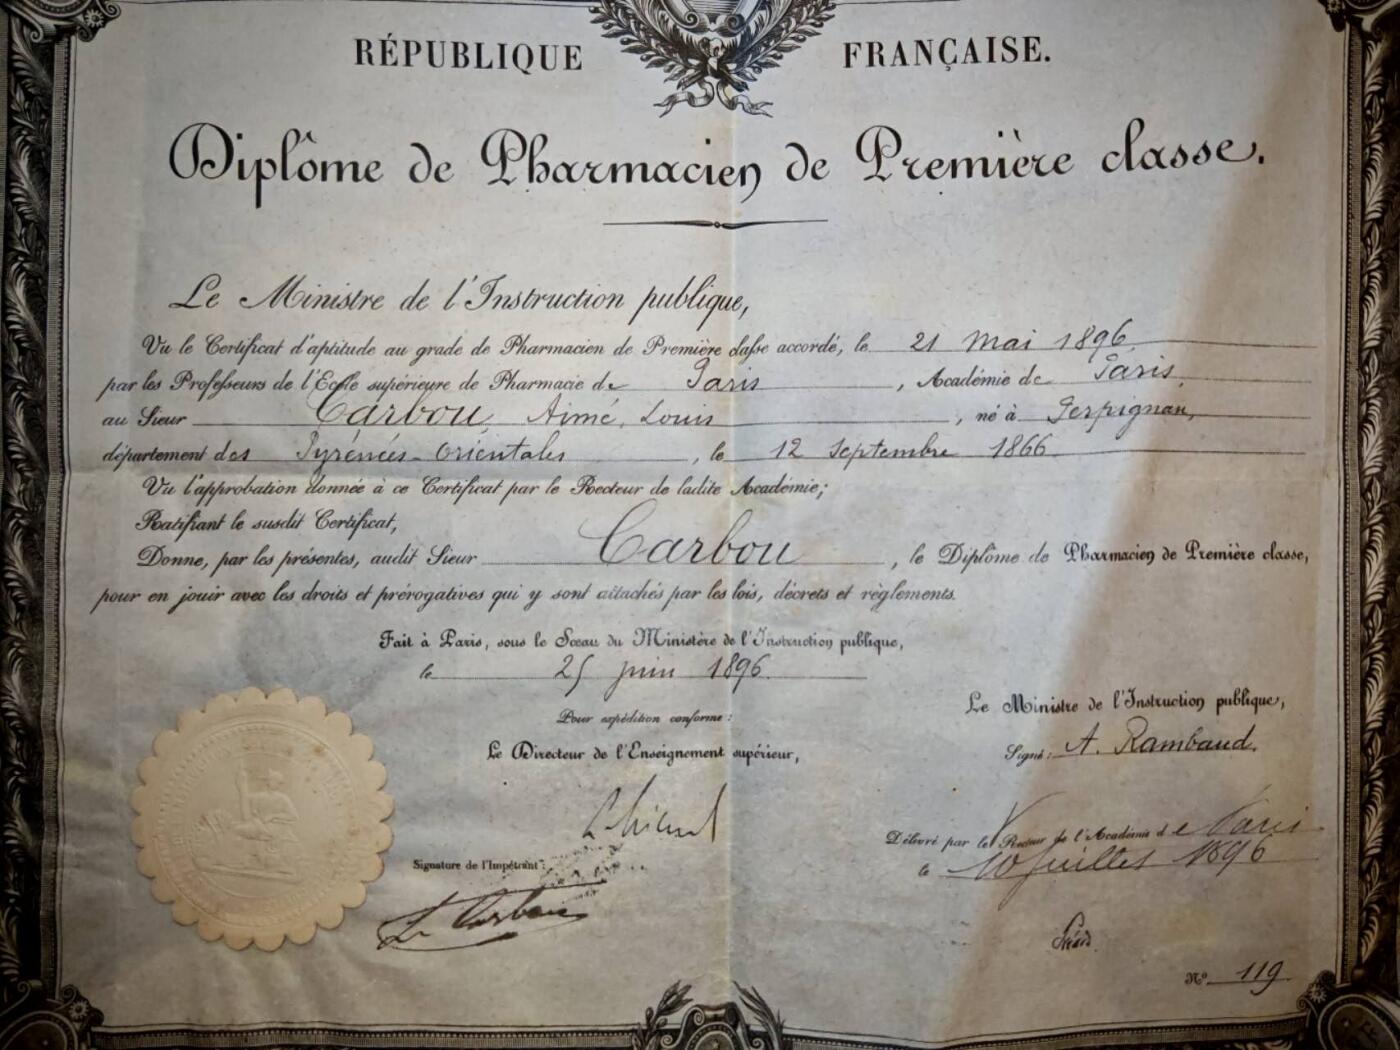 RÉPUBLIQUE FRANÇAISE.
Diplôme de Pharmacien de Première classe.
Le Ministre de l'Instruction publique,
Vu le Certificat d'aptitude au grade de Pharmacien de Première classe accordé, le 21 Mai 1896
par les Professeurs de l'Ecole supérieure de Pharmacie de Paris, Académie de Paris,
au Sieur Carbou, Aimé, Louis, né à Perpignan,
département des Pyrénées-Orientales, le 12 Septembre 1866
Vu l'approbation donnée à ce Certificat par le Recteur de ladite Académie;
Ratifiant le susdit Certificat,
Donne, par les présentes, audit Sieur Carbou, le Diplôme de Pharmacien de Première classe,
pour en jouir avec les droits et prérogatives qui y sont attachés par les lois, décrets et règlements.
Fait à Paris, sous le Sceau du Ministère de l'Instruction publique,
le 25 juin 1896.
Pour expédition conforme:
Le Directeur de l'Enseignement supérieur,
Le Ministre de l'Instruction publique,
Signé: A. Rambaud.
Délivré par le Recteur de l'Académie de Paris
le 10 juillet 1896
Signature de l'Impétrant:
L. Carbou
Nº 119